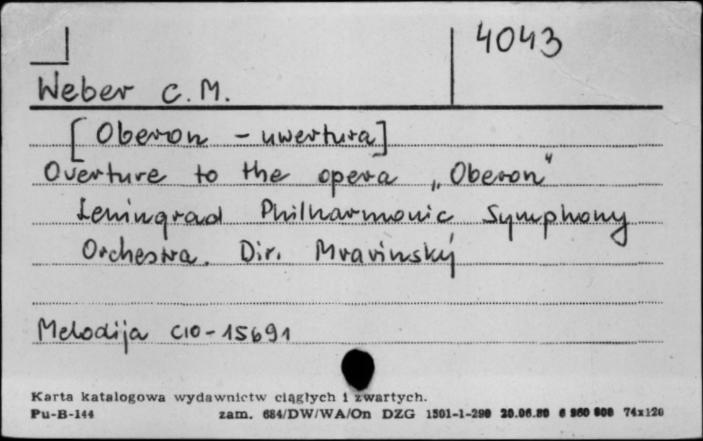 4043
Weber C.M.
[Oberon - uwertura]
Overture to the opera „Oberon"
Leningrad Philharmonic Symphony
Orchestra. Dir. Mravinský
Melodija C10-15691
Karta katalogowa wydawnictw ciągłych i zwartych.
Pu-B-144 zam. 684/DW/WA/On DZG 1501-1-290 20.06.80 6 960 000 74x120